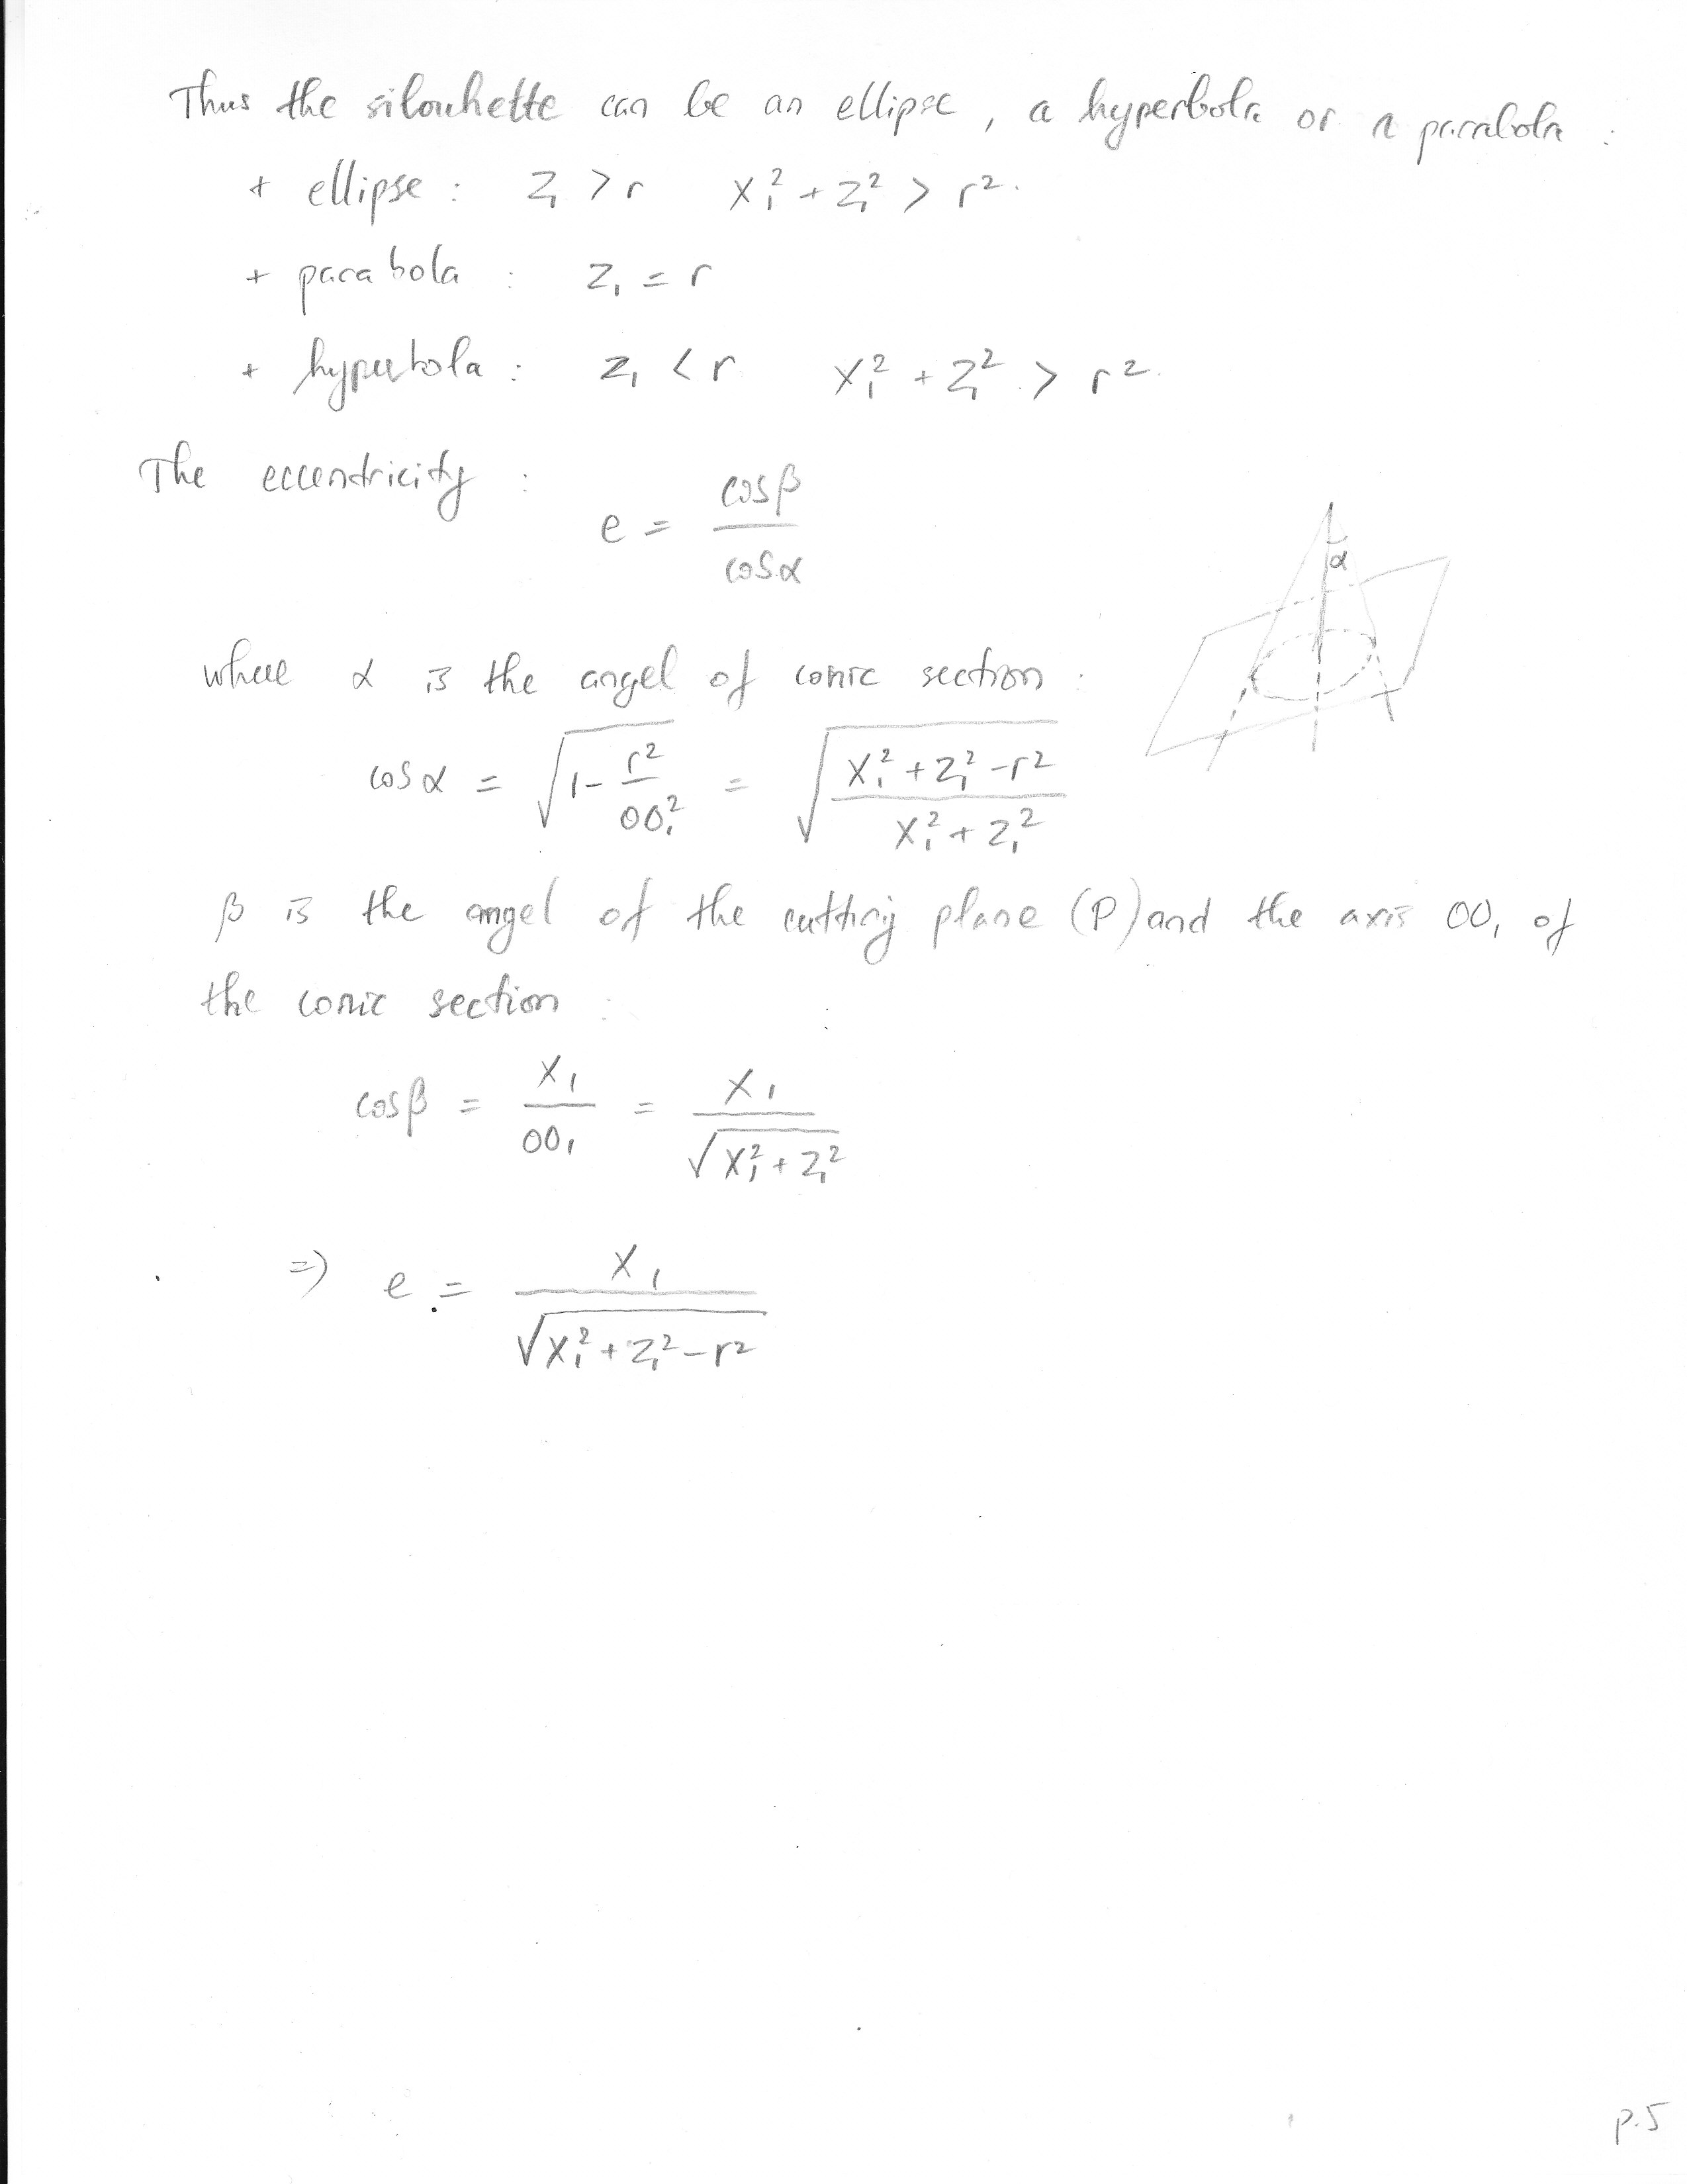 Thus the silouhette can be an ellipse, a hyperbola or a parabola :
+ ellipse : Z₁ > r X₁² + Z₁² > r².
+ parabola : Z₁ = r
+ hyperbola : Z₁ < r X₁² + Z₁² > r².
The eccentricity : e = cosβ / cosα
α
where α is the angel of conic section :
cosα = √(1 - r²/OO₁²) = √((X₁² + Z₁² - r²)/(X₁² + Z₁²))
β is the angel of the cutting plane (P) and the axis OO₁ of
the conic section :
cosβ = X₁/OO₁ = X₁/√(X₁² + Z₁²)
=> e = X₁/√(X₁² + Z₁² - r²)
p.5